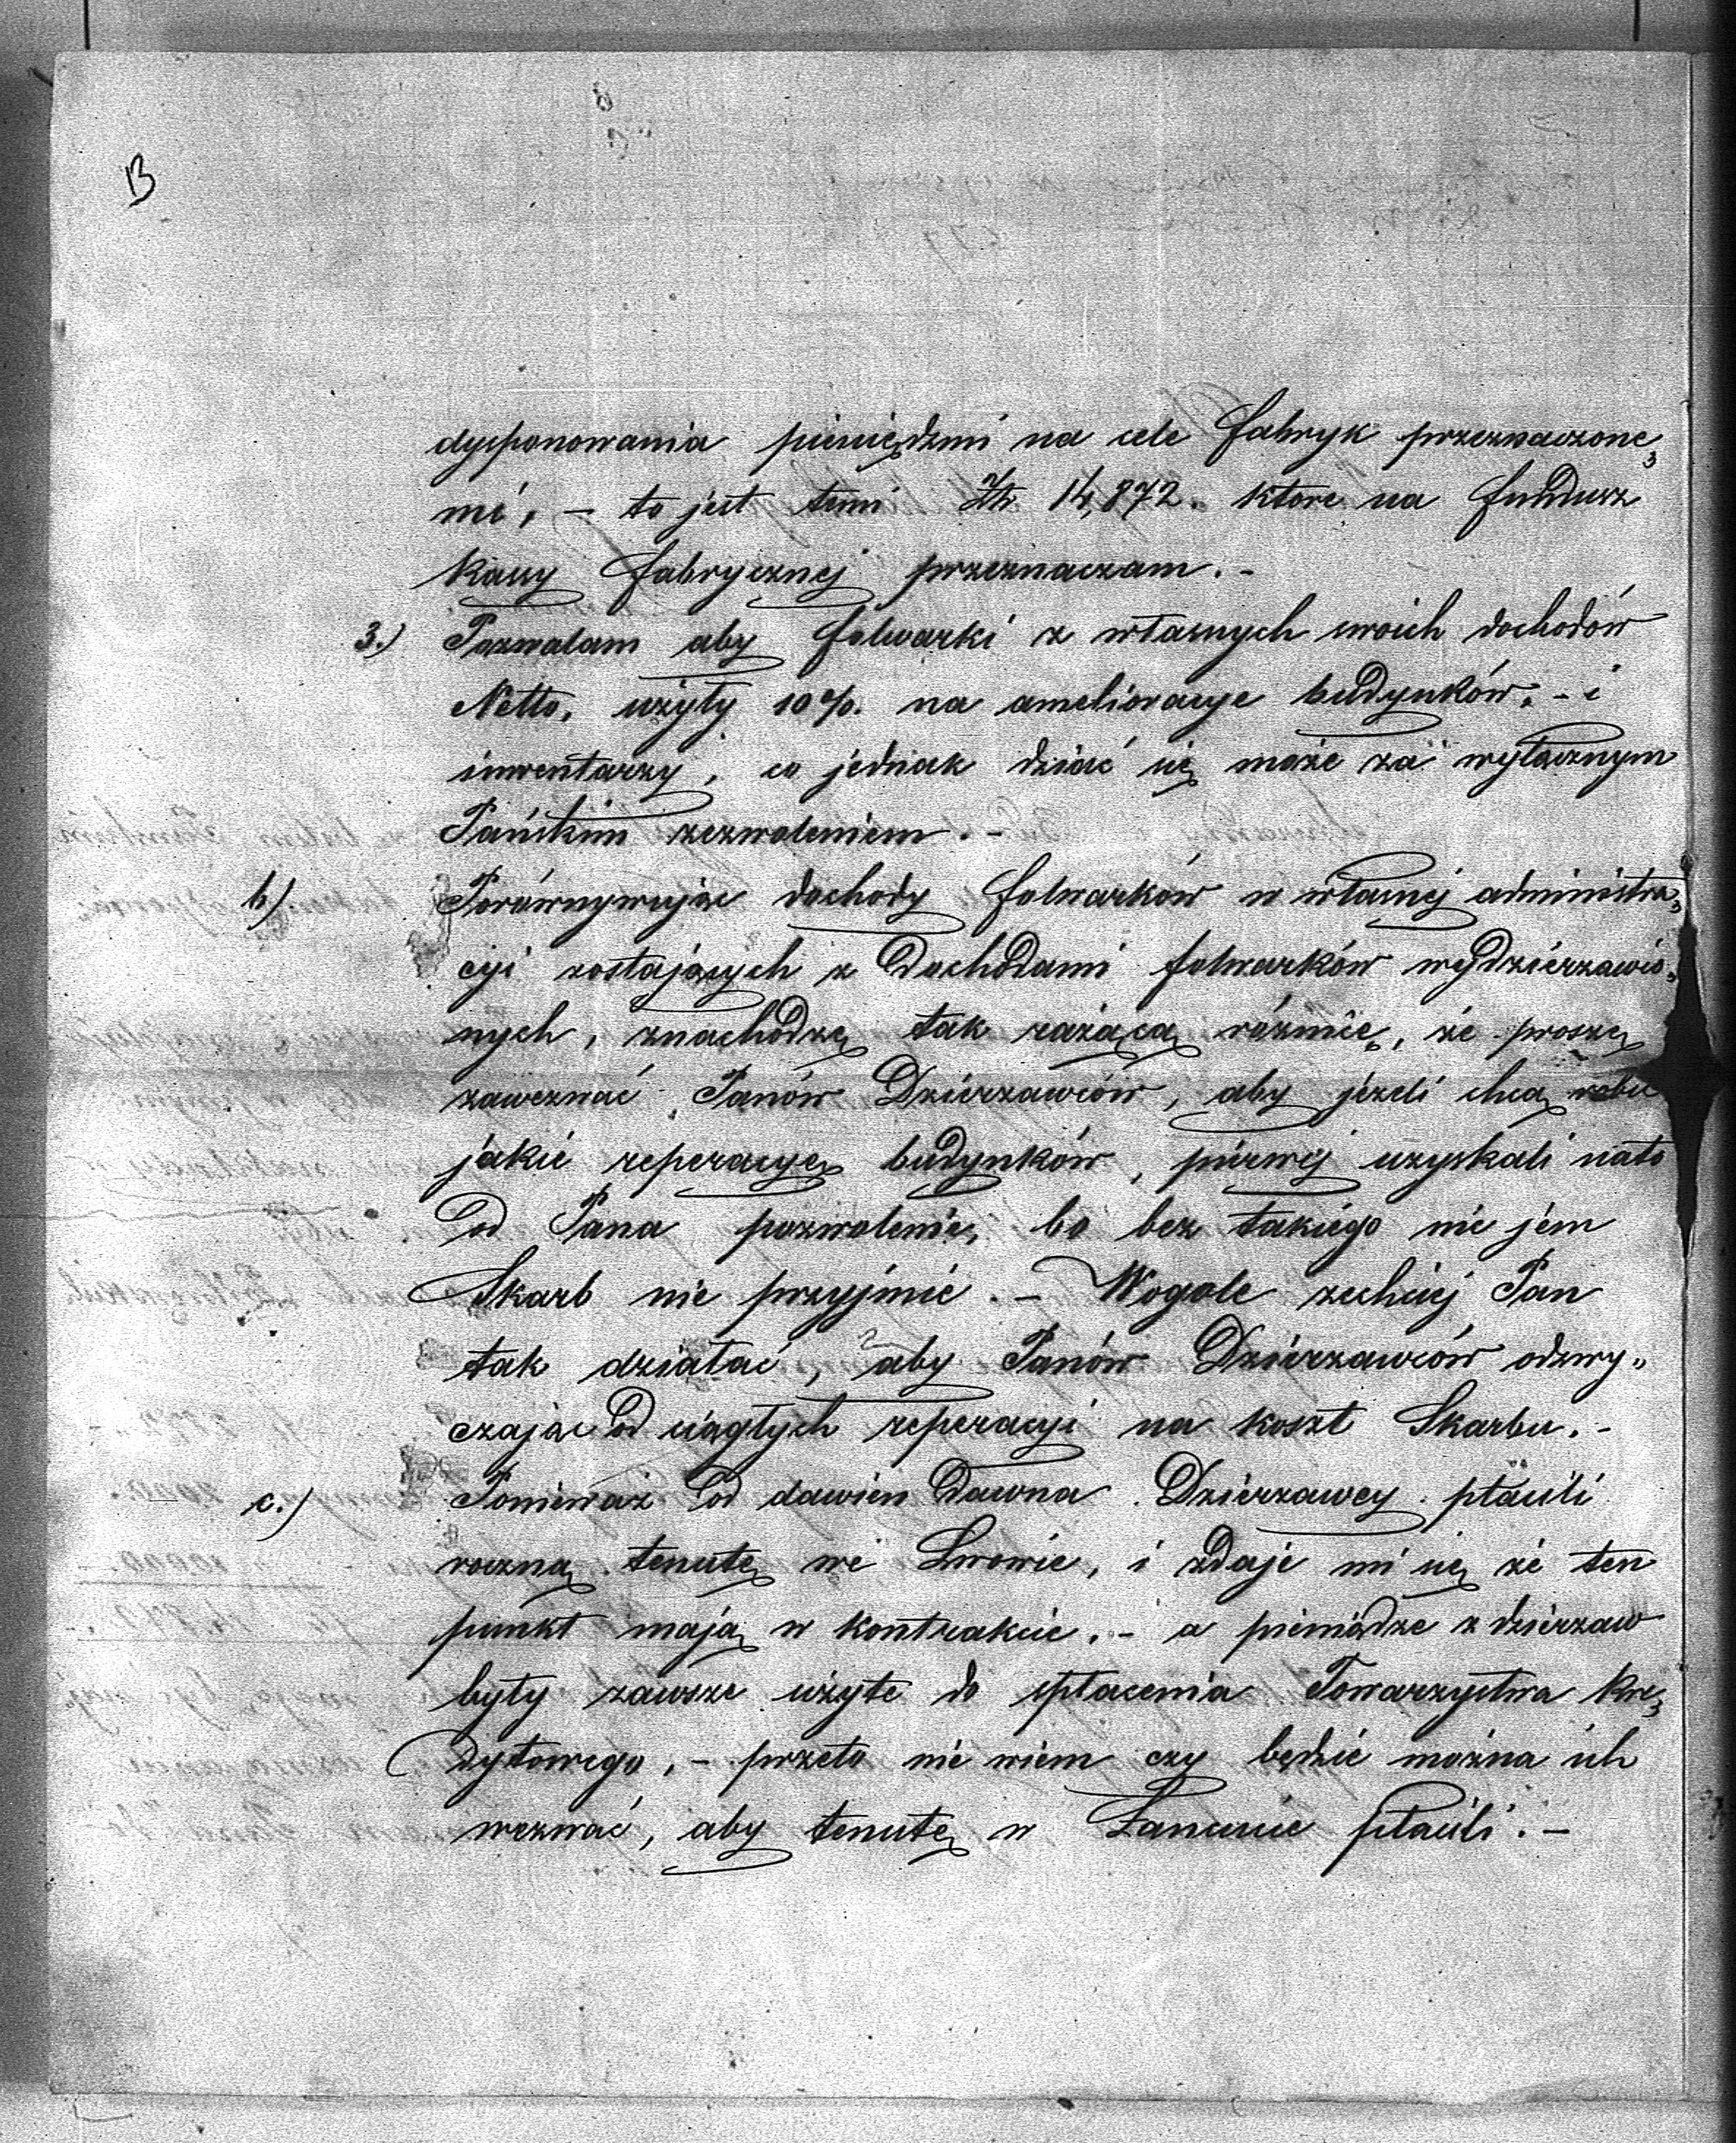 B
dysponowania pieniędzmi na cele fabryk przeznaczone„
mi, – to jest temi Zł 14,872. ktore na fundusz
kassy fabrycznej przeznaczam. –
3.) Pozwalam aby folwarki z własnych swoich dochodów
Netto, użyły 10%. na ameliowacye budynków, – i
inwentarzy, co jednak dziać się może za wyłacznym
Pańskim zezwoleniem. –
b). Porównywując dochody folwarków w własnej administra„
cyi zostających z dochodami folwarków wydzierzawio„
nych, znachodzę tak rażącą różnicę, że proszę
zawezwać Panów Dzierzawców, aby jeżeli chcą
jakie reperacye budynków, pierwej uzyskali nato
od Pana pozwolenie, bo bez takiego nie jem
Skarb nie przyjmie. – Wogole zechciej Pan
tak działać, aby Panów Dzierzawców odzwy„
czając od ciągłych reperacyi na koszt Skarbu. –
c.) Ponieważ od dawien dawna Dzierzawcy płacili
roczną tenutę we Lwowie, i zdaje mi się że ten
punkt mają w kontrakcie. – a pieniądze z dzierzaw
były zawsze użyte do spłacenia Towarzystwa kre„
dytowego, – przeto nie wiem czy będzie można ich
wezwać, aby tenutę w Łancucie płacili. –